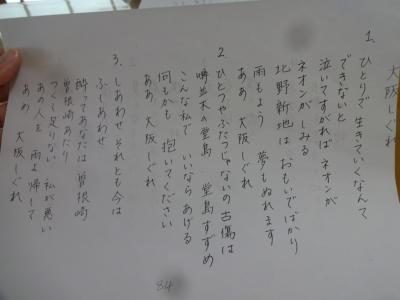 大阪しぐれ
1. ひとりで生きていくなんて
できないと
泣いてすがれば ネオンが
ネオンがしみる
北野新地は おもいでばかり
雨もよう 夢もぬれます
ああ 大阪しぐれ
2. ひとつやふたつじゃないの古傷は
噂並木の堂島 堂島すずめ
こんな私で いいならあげる
何もかも 抱いてください
ああ 大阪しぐれ
3. しあわせ それとも今は
ふしあわせ
酔ってあなたは 曽根崎
曽根崎あたり
つくし足りない 私が悪い
あの人を 雨よ帰して
ああ 大阪しぐれ
84